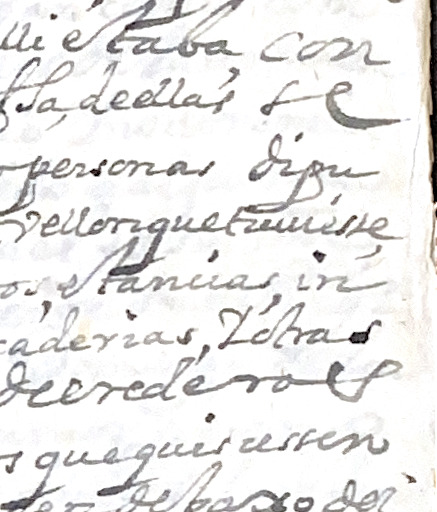 lli estaba con
ssa, de ellas se
personas dipu
vellon que tuuiese
os, estancias, in
caderias, Y otras
de eredero es
s que quisiessen
ten debaxo del